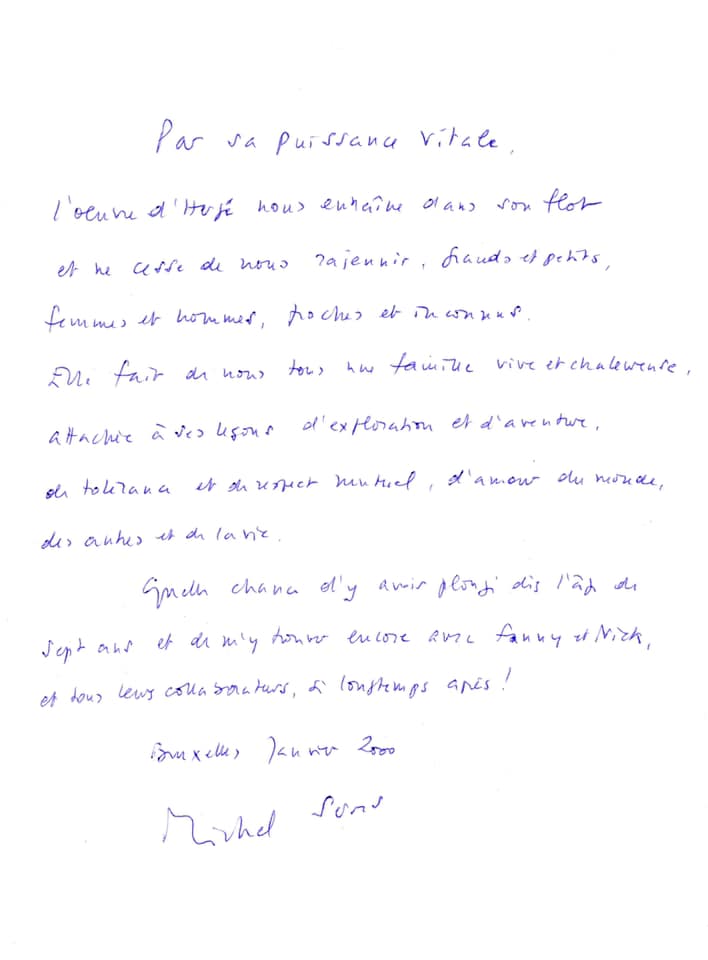 Par sa puissance vitale,
l'oeuvre d'Hergé nous entraîne dans son flot
et ne cesse de nous rajeunir, grands et petits,
femmes et hommes, proches et inconnus.
Elle fait de nous tous une famille vive et chaleureuse,
attachée à ses leçons d'exploration et d'aventure,
de tolérance et de respect mutuel, d'amour du monde,
des autres et de la vie.
Quelle chance d'y avoir plongé dès l'âge de
sept ans et de m'y trouver encore avec Fanny et Nick,
et tous leurs collaborateurs, si longtemps après!
Bruxelles Janvier 2000
Michel Serres